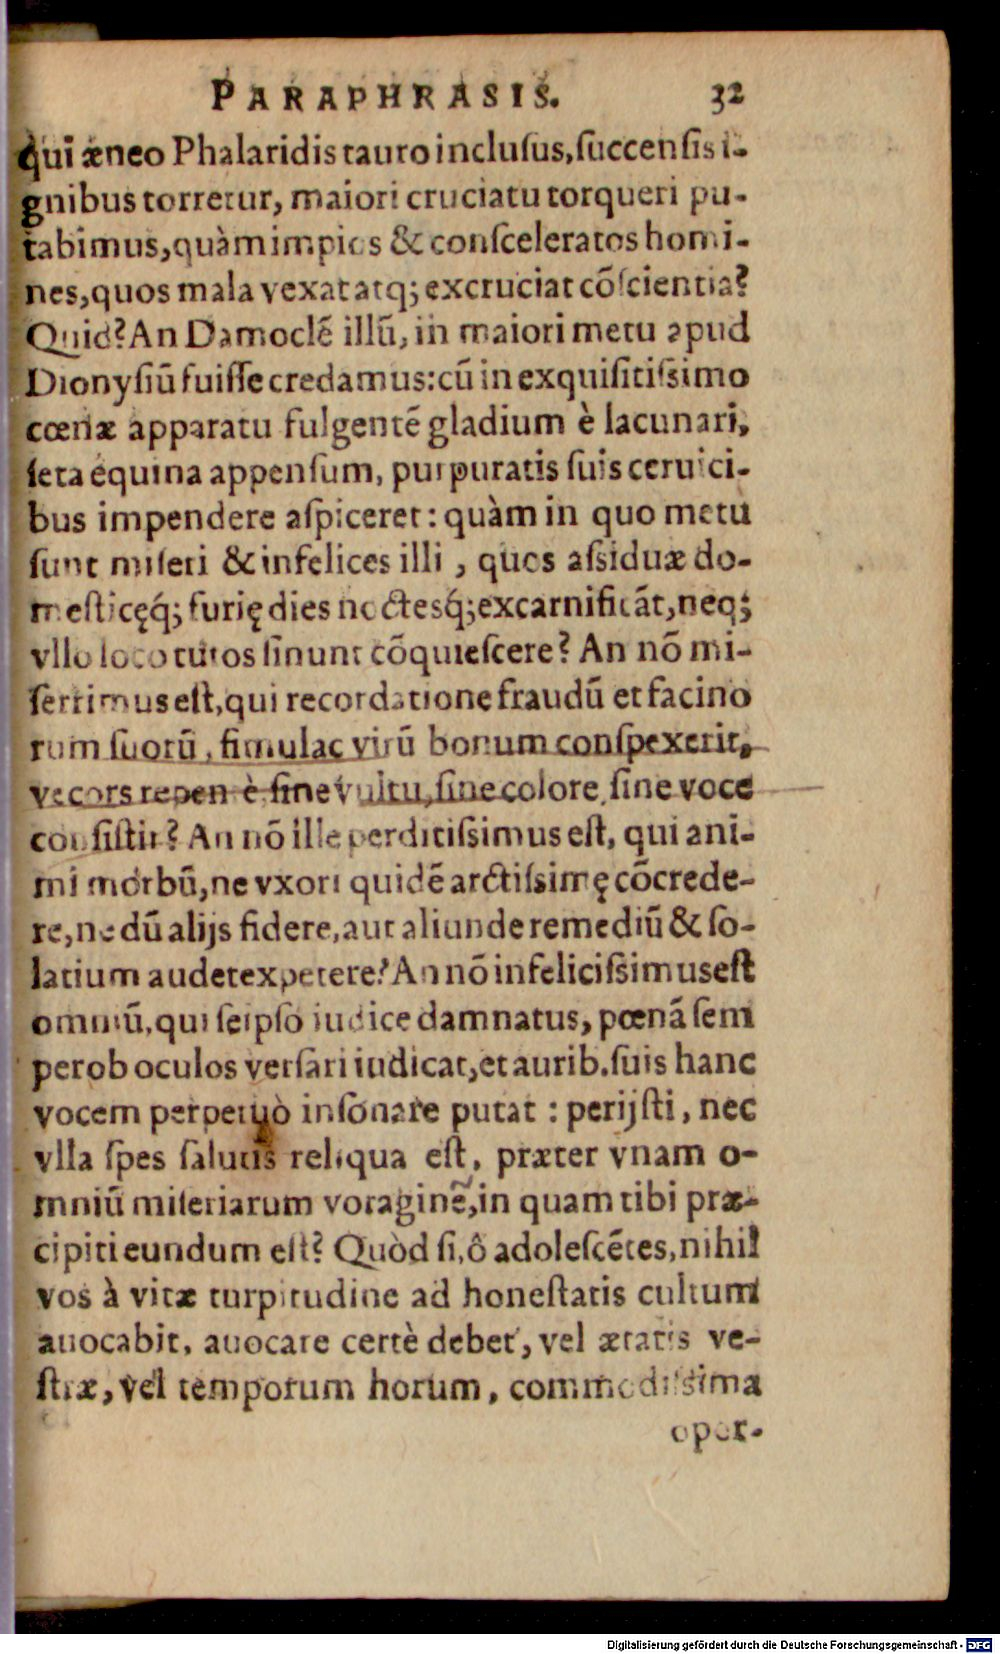 PARAPHRASIS. 32
qui æneo Phalaridis tauro inclusus, succensis i-
gnibus torretur, maiori cruciatu torqueri pu-
tabimus, quàm impios & consceleratos homi-
nes, quos mala vexat atq; excruciat cõscientia?
Quid? An Damoclẽ illũ, in maiori metu apud
Dionysiũ fuisse credamus: cũ in exquisitissimo
cœnæ apparatu fulgentẽ gladium è lacunari,
seta equina appensum, purpuratis suis ceruici-
bus impendere aspiceret: quàm in quo metu
sunt miseri & infelices illi, quos assiduæ do-
mesticęq́; furię dies noctesq́; excarnificãt, neq;
vllo loco tutos sinunt cõquiescere? An nõ mi-
serrimus est, qui recordatione fraudũ et facino
rum suorũ, simulac virũ bonum conspexerit,
vecors repentè sine vultu, sine colore, sine voce
consistit? An nõ ille perditissimus est, qui ani-
mi morbũ, ne vxori quidẽ arctissimę cõcrede-
re, nedũ alijs fidere, aut aliunde remediũ & so-
latium audet expetere? An nõ infelicissimus est
omniũ, qui seipso iudice damnatus, pœnã sem
per ob oculos versari iudicat, et aurib. suis hanc
vocem perpetuò insonare putat: perijsti, nec
vlla spes salutis reliqua est, præter vnam o-
mniũ miseriarum voraginẽ, in quam tibi præ-
cipiti eundum est? Quòd si, ô adolescẽtes, nihil
vos à vitæ turpitudine ad honestatis cultum
auocabit, auocare certè debet, vel ætatis ve-
stræ, vel temporum horum, commodissima
oper-
Digitalisierung gefördert durch die Deutsche Forschungsgemeinschaft - DFG